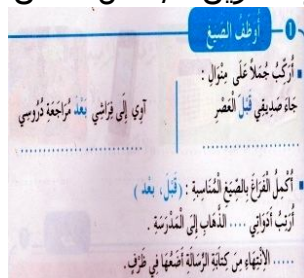 1 - أُوَظِّفُ الصِّيَغَ
■ أُرَكِّبُ جُمَلاً عَلَى مِنْوَالِ :
جَاءَ صَدِيقِي قَبْلَ الْعَصْرِ آوِي إِلَى فِرَاشِي بَعْدَ مُرَاجَعَةِ دُرُوسِي
.................... ....................
■ أُكْمِلُ الْفَرَاغَ بِالصِّيَغِ الْمُنَاسِبَةِ : ( قَبْلَ ، بَعْدَ )
أُرَتِّبُ أَدَوَاتِي ..... الذَّهَابِ إِلَى الْمَدْرَسَةِ .
..... الِانْتِهَاءِ مِنْ كِتَابَةِ الرِّسَالَةِ أَضَعُهَا فِي ظَرْفٍ.